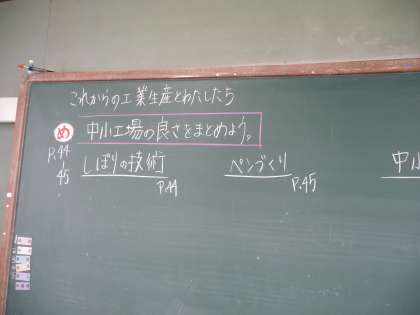 これからの工業生産とわたしたち
め 中小工場の良さをまとめよう。
P.44
45
しぼりの技術
P.44
ペンづくり
P.45
中小